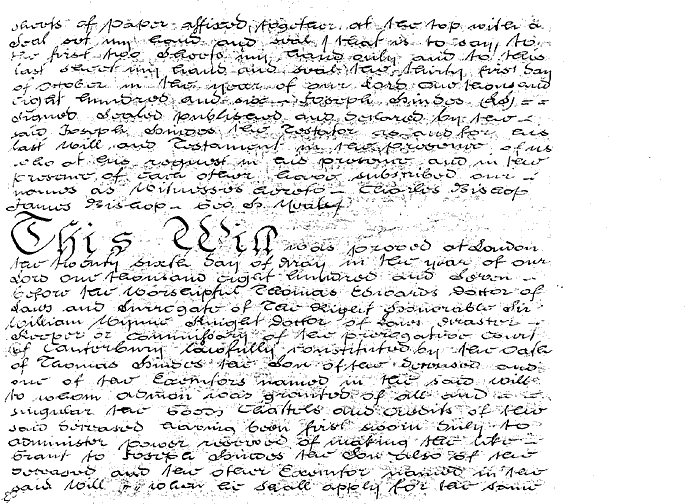 sheets of Paper affixed together at the top with a
Seal set my hand and seal (that is to say) to
the first two Sheets my hand only and to this
last sheet my hand and seal the thirty first Day
of October in the year of our Lord One thousand
eight hundred and six – Joseph Hindes (LS) – –
Signed Sealed published and declared by the –
said Joseph Hindes the Testator as and for his
last Will and Testament in the presence of us
who at his request in his presence and in the
presence of each other have subscribed our –
names as Witnesses hereto – Charles Bishop
James Bishop – Geo. H.
This Will was proved at London
the twenty sixth Day of May in the year of our
Lord One thousand eight hundred and Seven –
before the Worshipful Thomas Edwards Doctor of
Laws and Surrogate of The Right Honorable Sir
William Wynne Knight Doctor of Laws Master –
Keeper or Commissary of the prerogative Court
of Canterbury lawfully constituted by the Oath
of Thomas Hindes the Son of the deceased and
one of the Executors named in the said Will
to whom admon was granted of all and –
singular the Goods Chattels and Credits of the
said deceased having been first sworn Duly to
administer power reserved of making the like –
Grant to Joseph Hindes the Son also of the
deceased and the other Executor named in the
said Will when he shall apply for the same